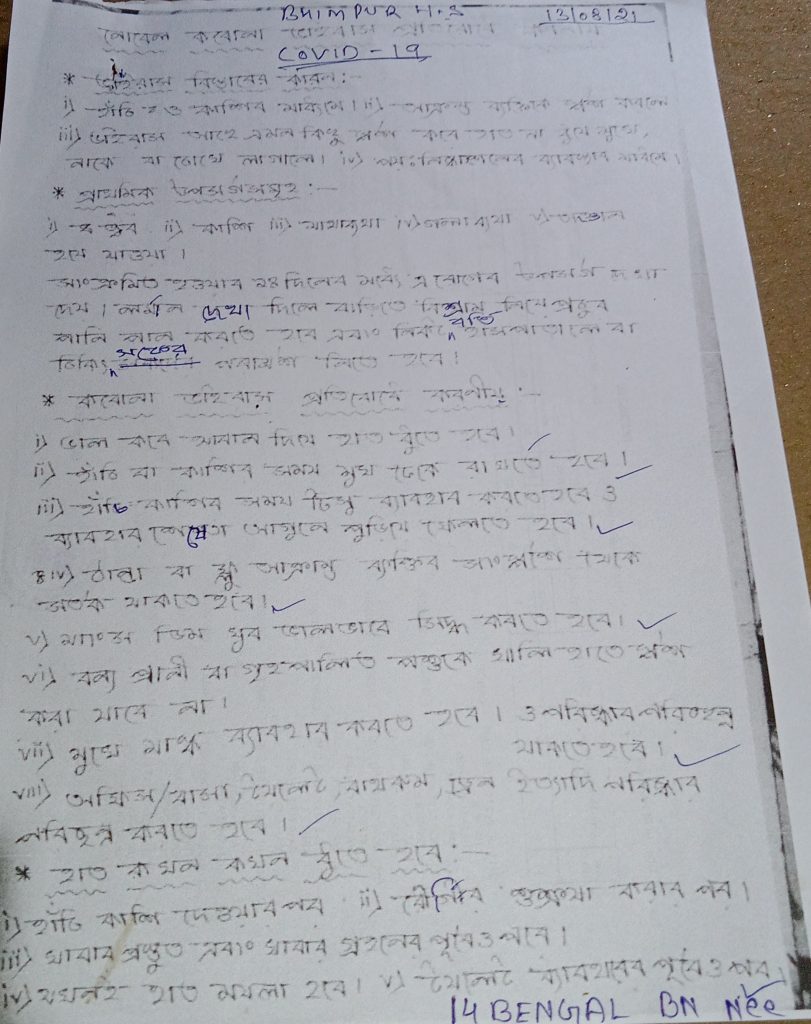 BHIMPUR H.S 13/08/21
নোবেল করোনা ভাইরাস
COVID-19
* ভাইরাস বিস্তারের কারন:-
i) হাঁচি ও কাশির মাধ্যমে। ii) আক্রান্ত ব্যক্তিকে স্পর্শ করলে
iii) ভাইরাস আছে এমন কিছু স্পর্শ করে হাত না ধুয়ে মুখে,
নাকে বা চোখে লাগালে। iv) পয়ঃনিষ্কাশনের ব্যবস্থার মাধ্যমে।
* প্রাথমিক উপসর্গসমূহ:-
i) জ্বর ii) কাশি iii) মাথাব্যথা iv) গলাব্যথা v)
হয়ে যাওয়া।
সংক্রমিত হওয়ার ১৪ দিনের মধ্যে এ রোগের উপসর্গ দেখা
দেয়। দেখা দিলে বাড়িতে বিশ্রাম নিয়ে প্রচুর
পানি পান করতে হবে এবং নিকটবর্তি হাসপাতালে বা
পরামর্শ নিতে হবে।
* করোনা ভাইরাস প্রতিরোধে করণীয়:-
i) ভাল করে সাবান দিয়ে হাত ধুতে হবে।
ii) হাঁচি বা কাশির সময় মুখ ঢেকে রাখতে হবে।
iii) হাঁচি কাশির সময় টিসু ব্যাবহার করতে হবে ও
ব্যাবহার শেষে তা আগুনে পুড়িয়ে ফেলতে হবে।
iv) ঠান্ডা বা ফ্লু আক্রান্ত ব্যক্তির সংস্পর্শ থেকে
সতর্ক থাকতে হবে।
v) মাংস ডিম খুব ভালভাবে সিদ্ধ করতে হবে।
vi) বন্য প্রানী বা গৃহপালিত পশুকে খালি হাতে স্পর্শ
করা যাবে না।
vii) মুখে মাস্ক ব্যাবহার করতে হবে। ও পরিষ্কার পরিচ্ছন্ন
থাকতে হবে।
viii) অফিস/বাসা, টয়লেট, বাথরুম, ড্রেন ইত্যাদি পরিষ্কার
পরিছন্ন করতে হবে।
* হাত কখন কখন ধুতে হবে:-
i) হাঁচি কাশি দেওয়ার পর ii) রোগীর শুশ্রুষা করার পর।
iii) খাবার প্রস্তুত এবং খাবার গ্রহনের পূর্বে ও পরে।
iv) যখনই হাত ময়লা হবে। v) টয়লেট ব্যাবহারের পূর্বে ও পর।
14 BENGAL BN Nce